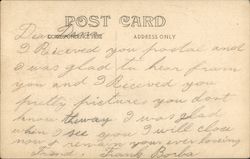 POST CARD
CORRESPONDENCE ADDRESS ONLY
Dear
I Received you postal and
I was glad to hear from
you and I Received you
pretty pictures you dont
know I was glad
when I see you I will close
now I remain your ever loving
friend Frank Borba